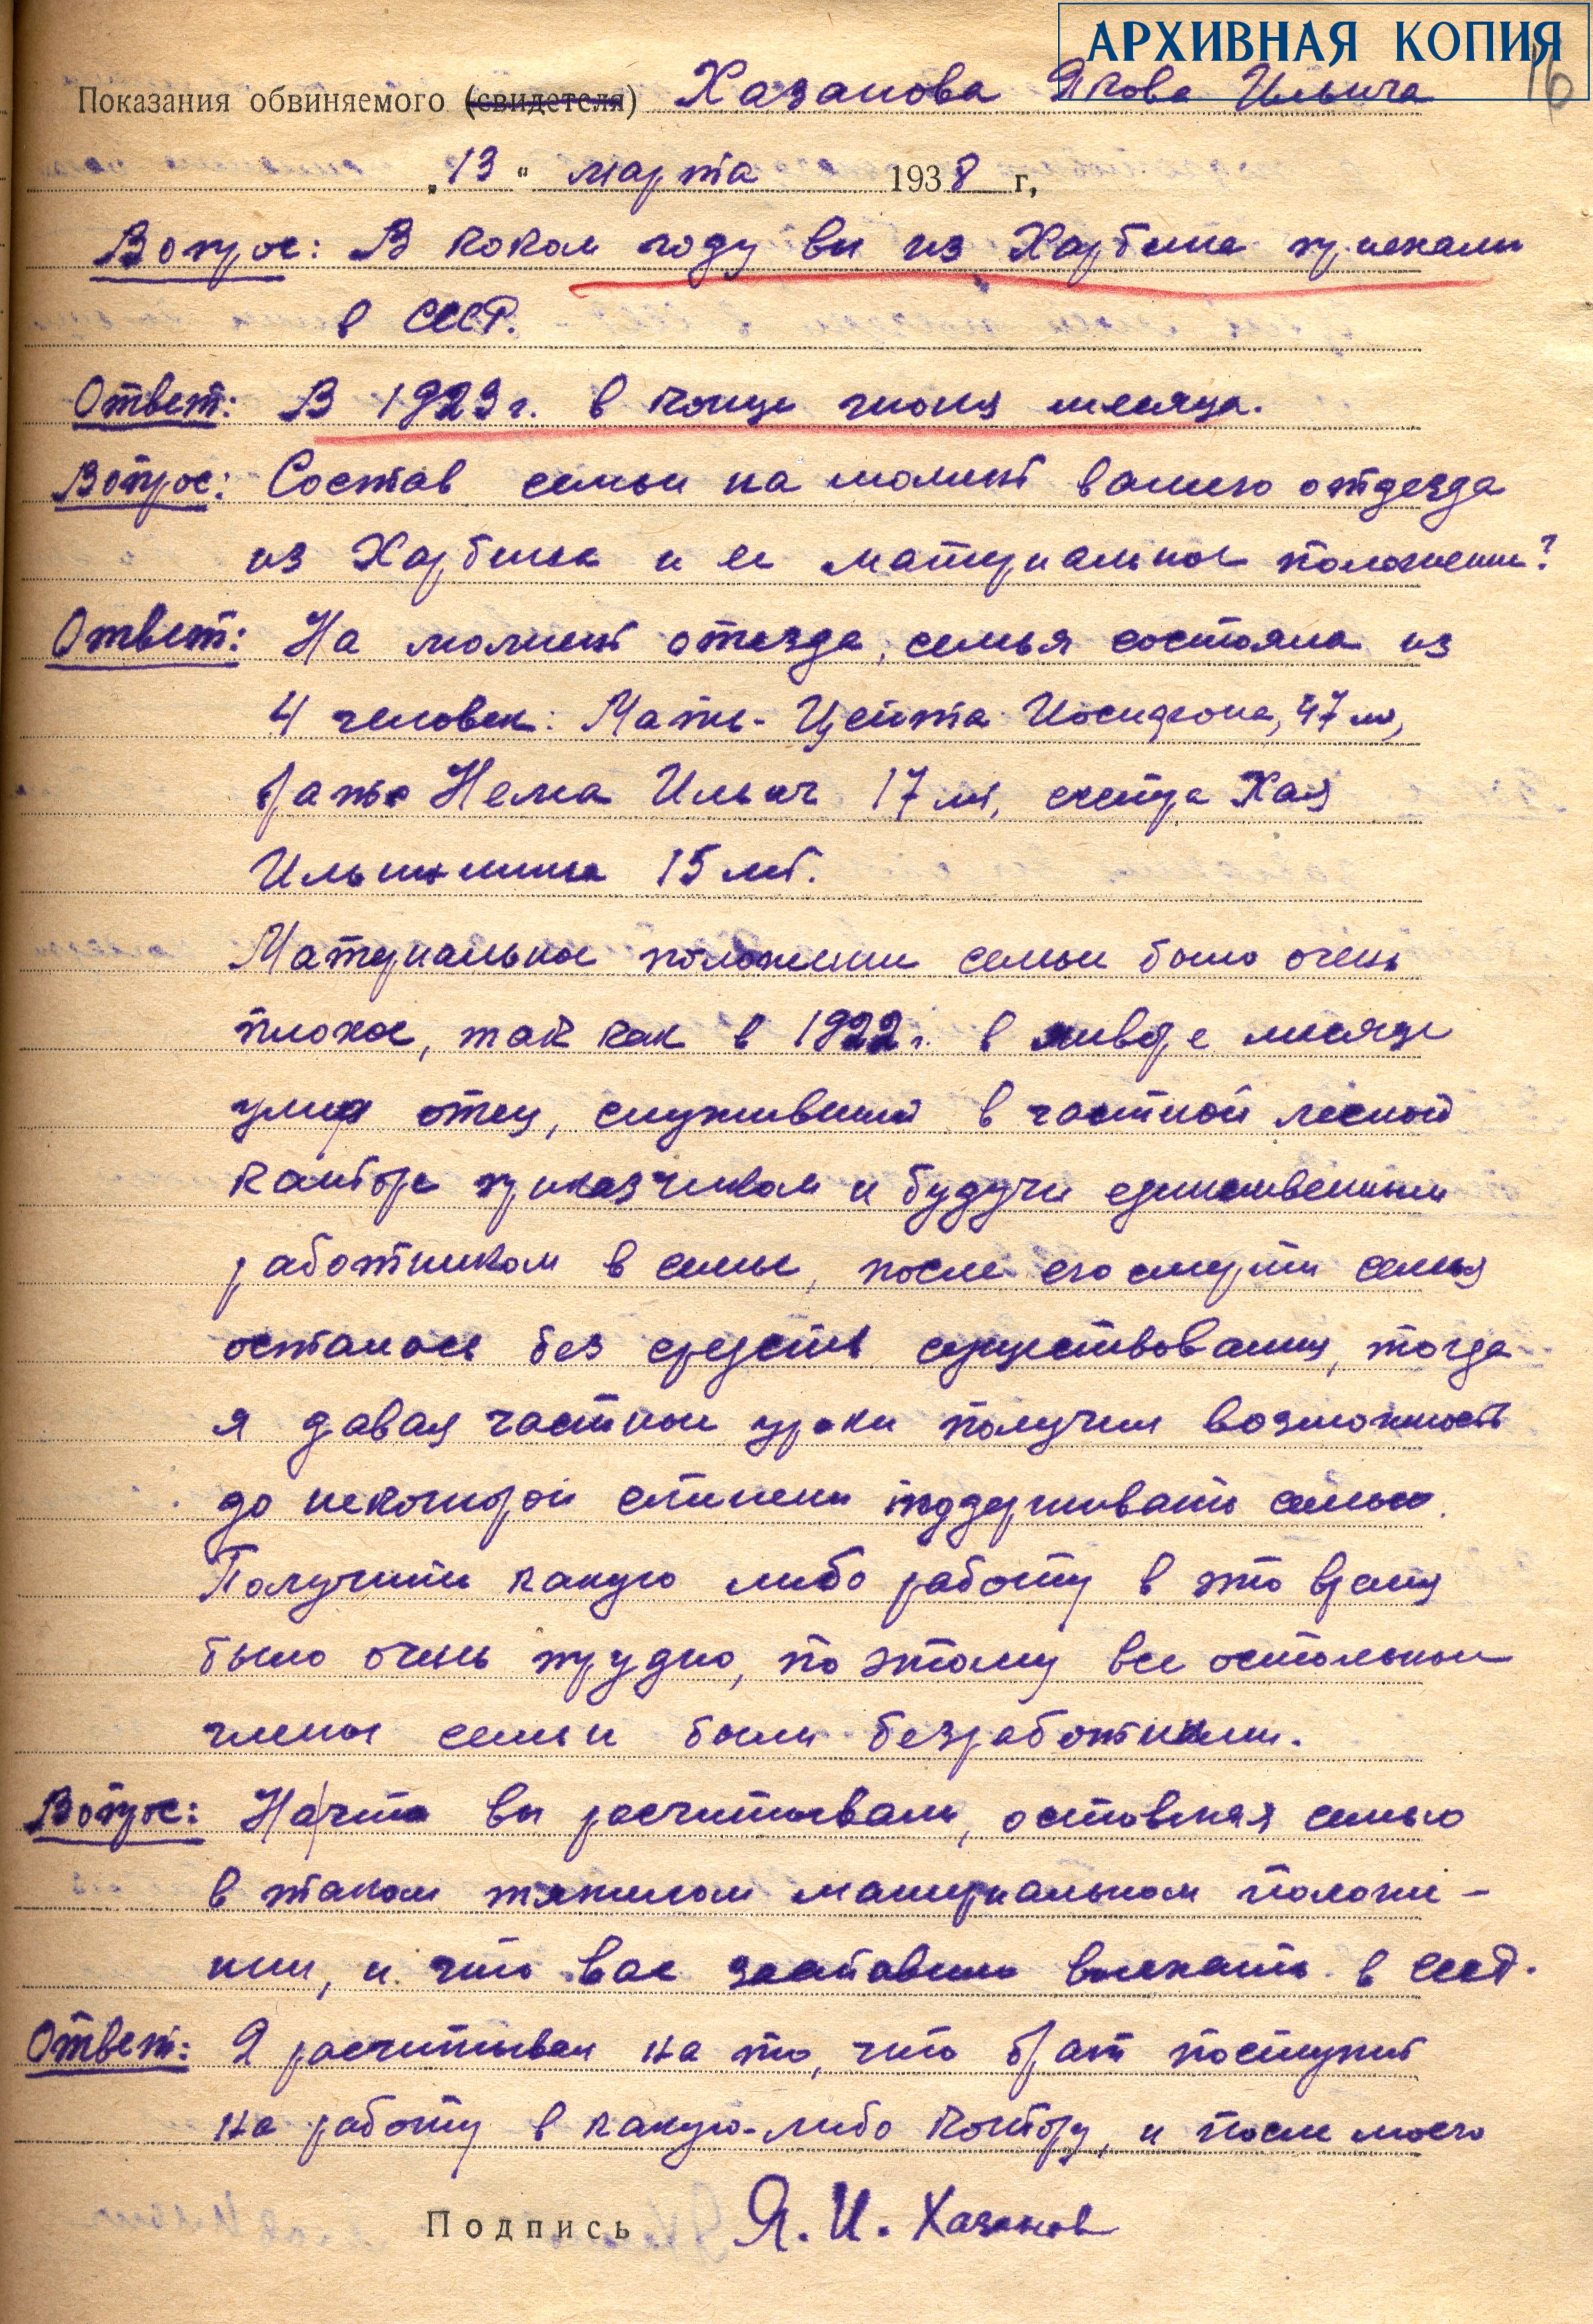 АРХИВНАЯ КОПИЯ
16
Показания обвиняемого (свидетеля) Хазанова Якова Ильича
„13“ марта 1938 г,
Вопрос: В каком году вы из Харбина приехали
в СССР.
Ответ: В 1923 г. в конце июня месяца.
Вопрос: Состав семьи на момент вашего отъезда
из Харбина и ее материальное положение?
Ответ: На момент отъезда, семья состояла из
4 человек: Мать - Цейта Иосифовна, 47 лет,
брат Нема Ильич 17 лет, сестра Хая
Ильинишна 15 лет.
Материальное положение семьи было очень
плохое, так как в 1922 г. в январе месяце
умер отец, служивший в частной лесной
канторе приказчиком и будучи единственным
работником в семье, после его смерти семья
осталась без средств существования, тогда
я давая частные уроки получил возможность
до некоторой степени поддерживать семью.
Получить какую либо работу в это время
было очень трудно, по этому все остальные
члены семьи были безработными.
Вопрос: На что вы расчитывали, оставляя семью
в таком тяжелом материальном положе-
нии, и что вас заставило выехать в СССР.
Ответ: Я расчитывал на то, что брат поступит
на работу в какую-либо контору, и после моего
Подпись Я. И. Хазанов